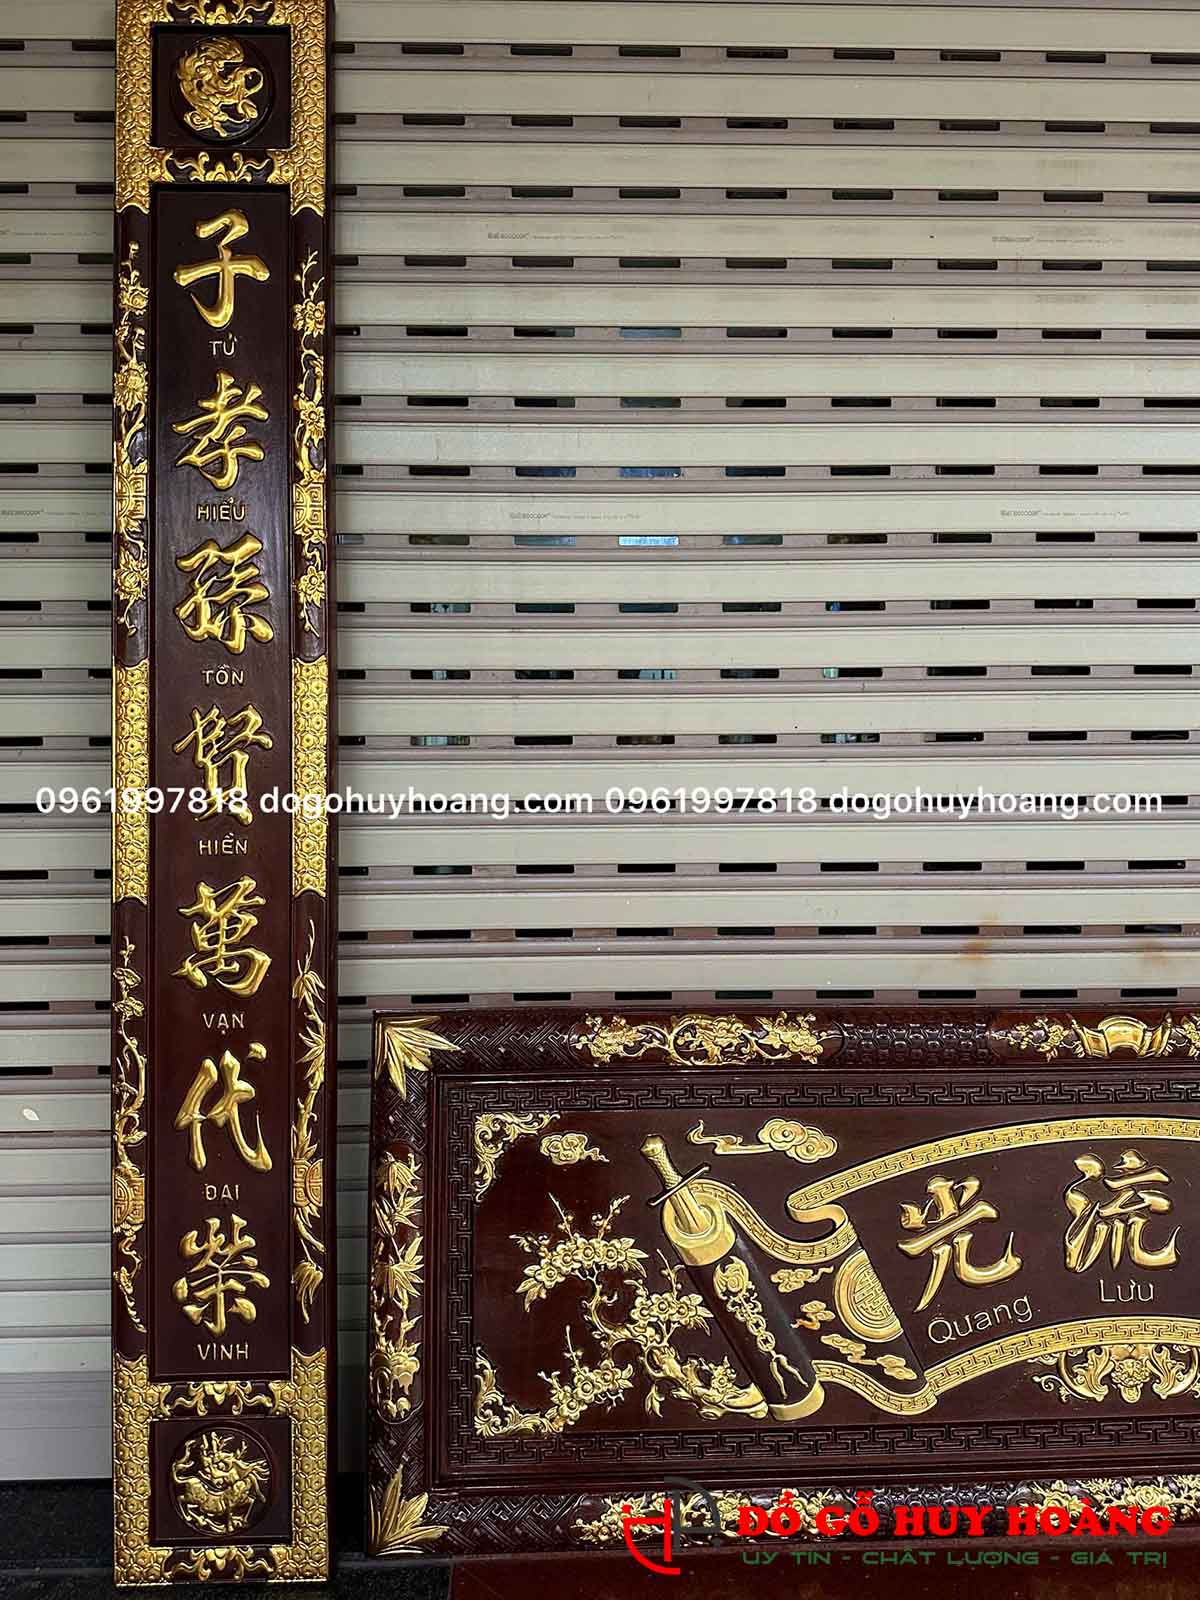 子
TỬ
孝
HIẾU
孫
TÔN
賢
HIỀN
萬
VẠN
代
ĐẠI
榮
VINH
0961997818 dogohuyhoang.com 0961997818 dogohuyhoang.com
光 流
Quang Lưu
ĐỒ GỖ HUY HOÀNG
UY TÍN - CHẤT LƯỢNG - GIÁ TRỊ